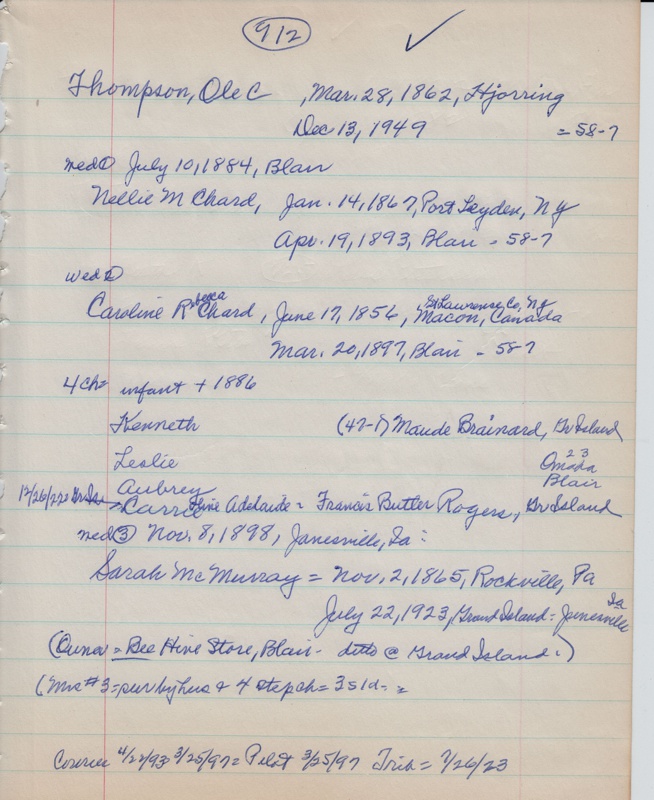 912 ✓
Thompson, Ole C , Mar. 28, 1862, Hjorring
Dec 13, 1949 = 58-7
wed ① July 10, 1884, Blair
Nellie M Chard, Jan. 14, 1867, Port Leyden, NY
Apr. 19, 1893, Blair - 58-7
wed ②
Caroline Rebecca Chard, June 17, 1856, St Lawrence, Co, NY Macon, Canada
Mar. 20, 1897, Blair - 58-7
4 ch= infant + 1886
Kenneth (47-7) Maude Brainard, Gr Island
Leslie 23 Omaha
Aubrey Blair
12/26/22 = Gr Is Carrie Adelaide = Francis Butler Rogers, Gr Island
wed ③ Nov. 8, 1898, Janesville, Ia :
Sarah McMurray = Nov. 2, 1865, Rockville, Pa
July 22, 1923, Grand Island - Janesville Ia
(Owner = Bee Hive Store, Blair - ditto @ Grand Island.)
(Mrs #3 = sur by hus & 4 step ch = 3 s 1 d - =
Courier 4/22/93 3/25/97 = Pilot 3/25/97 Trib = 7/26/23